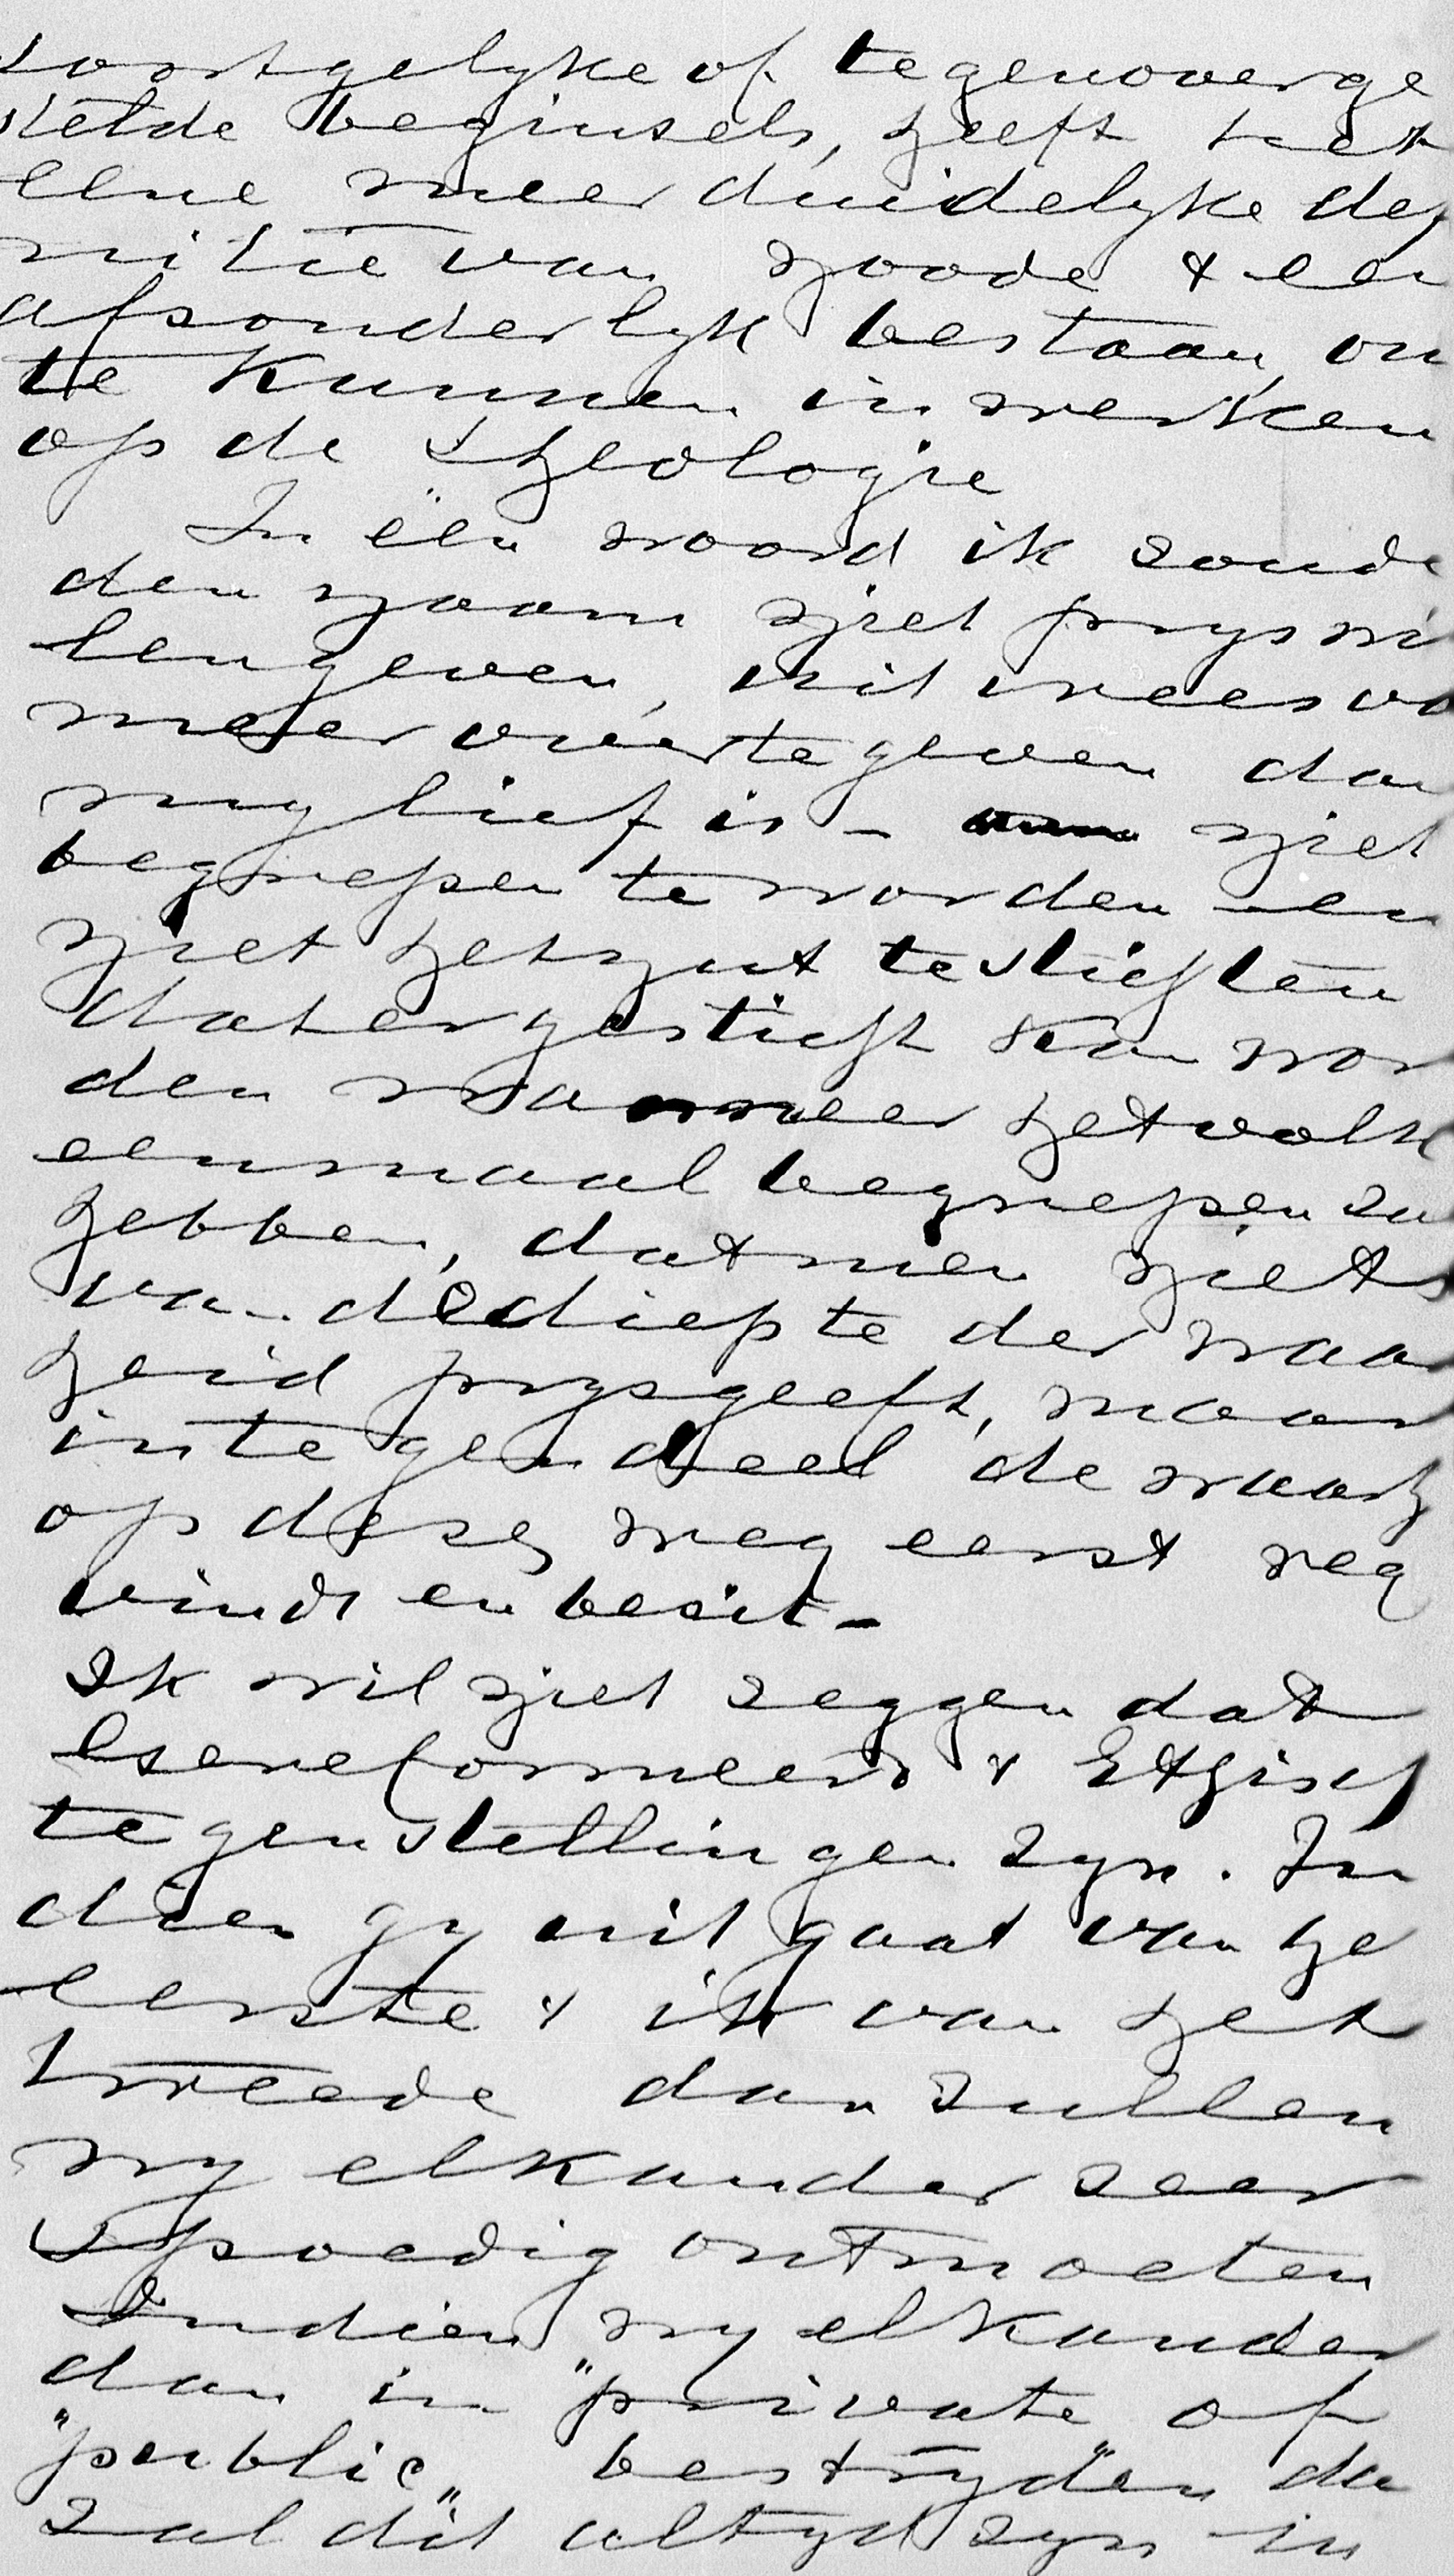 soortgelyke of tegenoverge
stelde beginsels, heeft het
eene meer duidelyke def
nitie van noode & een
afsonderlyk bestaan, om
te kunnen inwerken
op de Theologie
In één woord ik soude
den naam niet prys wil
len geven, uit vrees vo
meer weer te geven dan
my lief is – niet
begrepen te worden en
niet het nut te stichten
dat er gesticht kan wor
den wanneer het volk
eenmaal begrepen sa
hebben, dat men niets
van de diepte der waa
heid prysgeeft, maar
integendeel de waarh
op dese weg eerst reg
vindt en besit –
Ik wil niet seggen dat
Gereformeerd & Ethisch
tegenstellingen syn. In
dien gy uit gaat van he
eerste & ik van het
tweede dan sullen
wy elkander seer
spoedig ontmoeten
Indien wy elkander
dan in "private" of
"public" bestryden da
sal dit altyd syn in